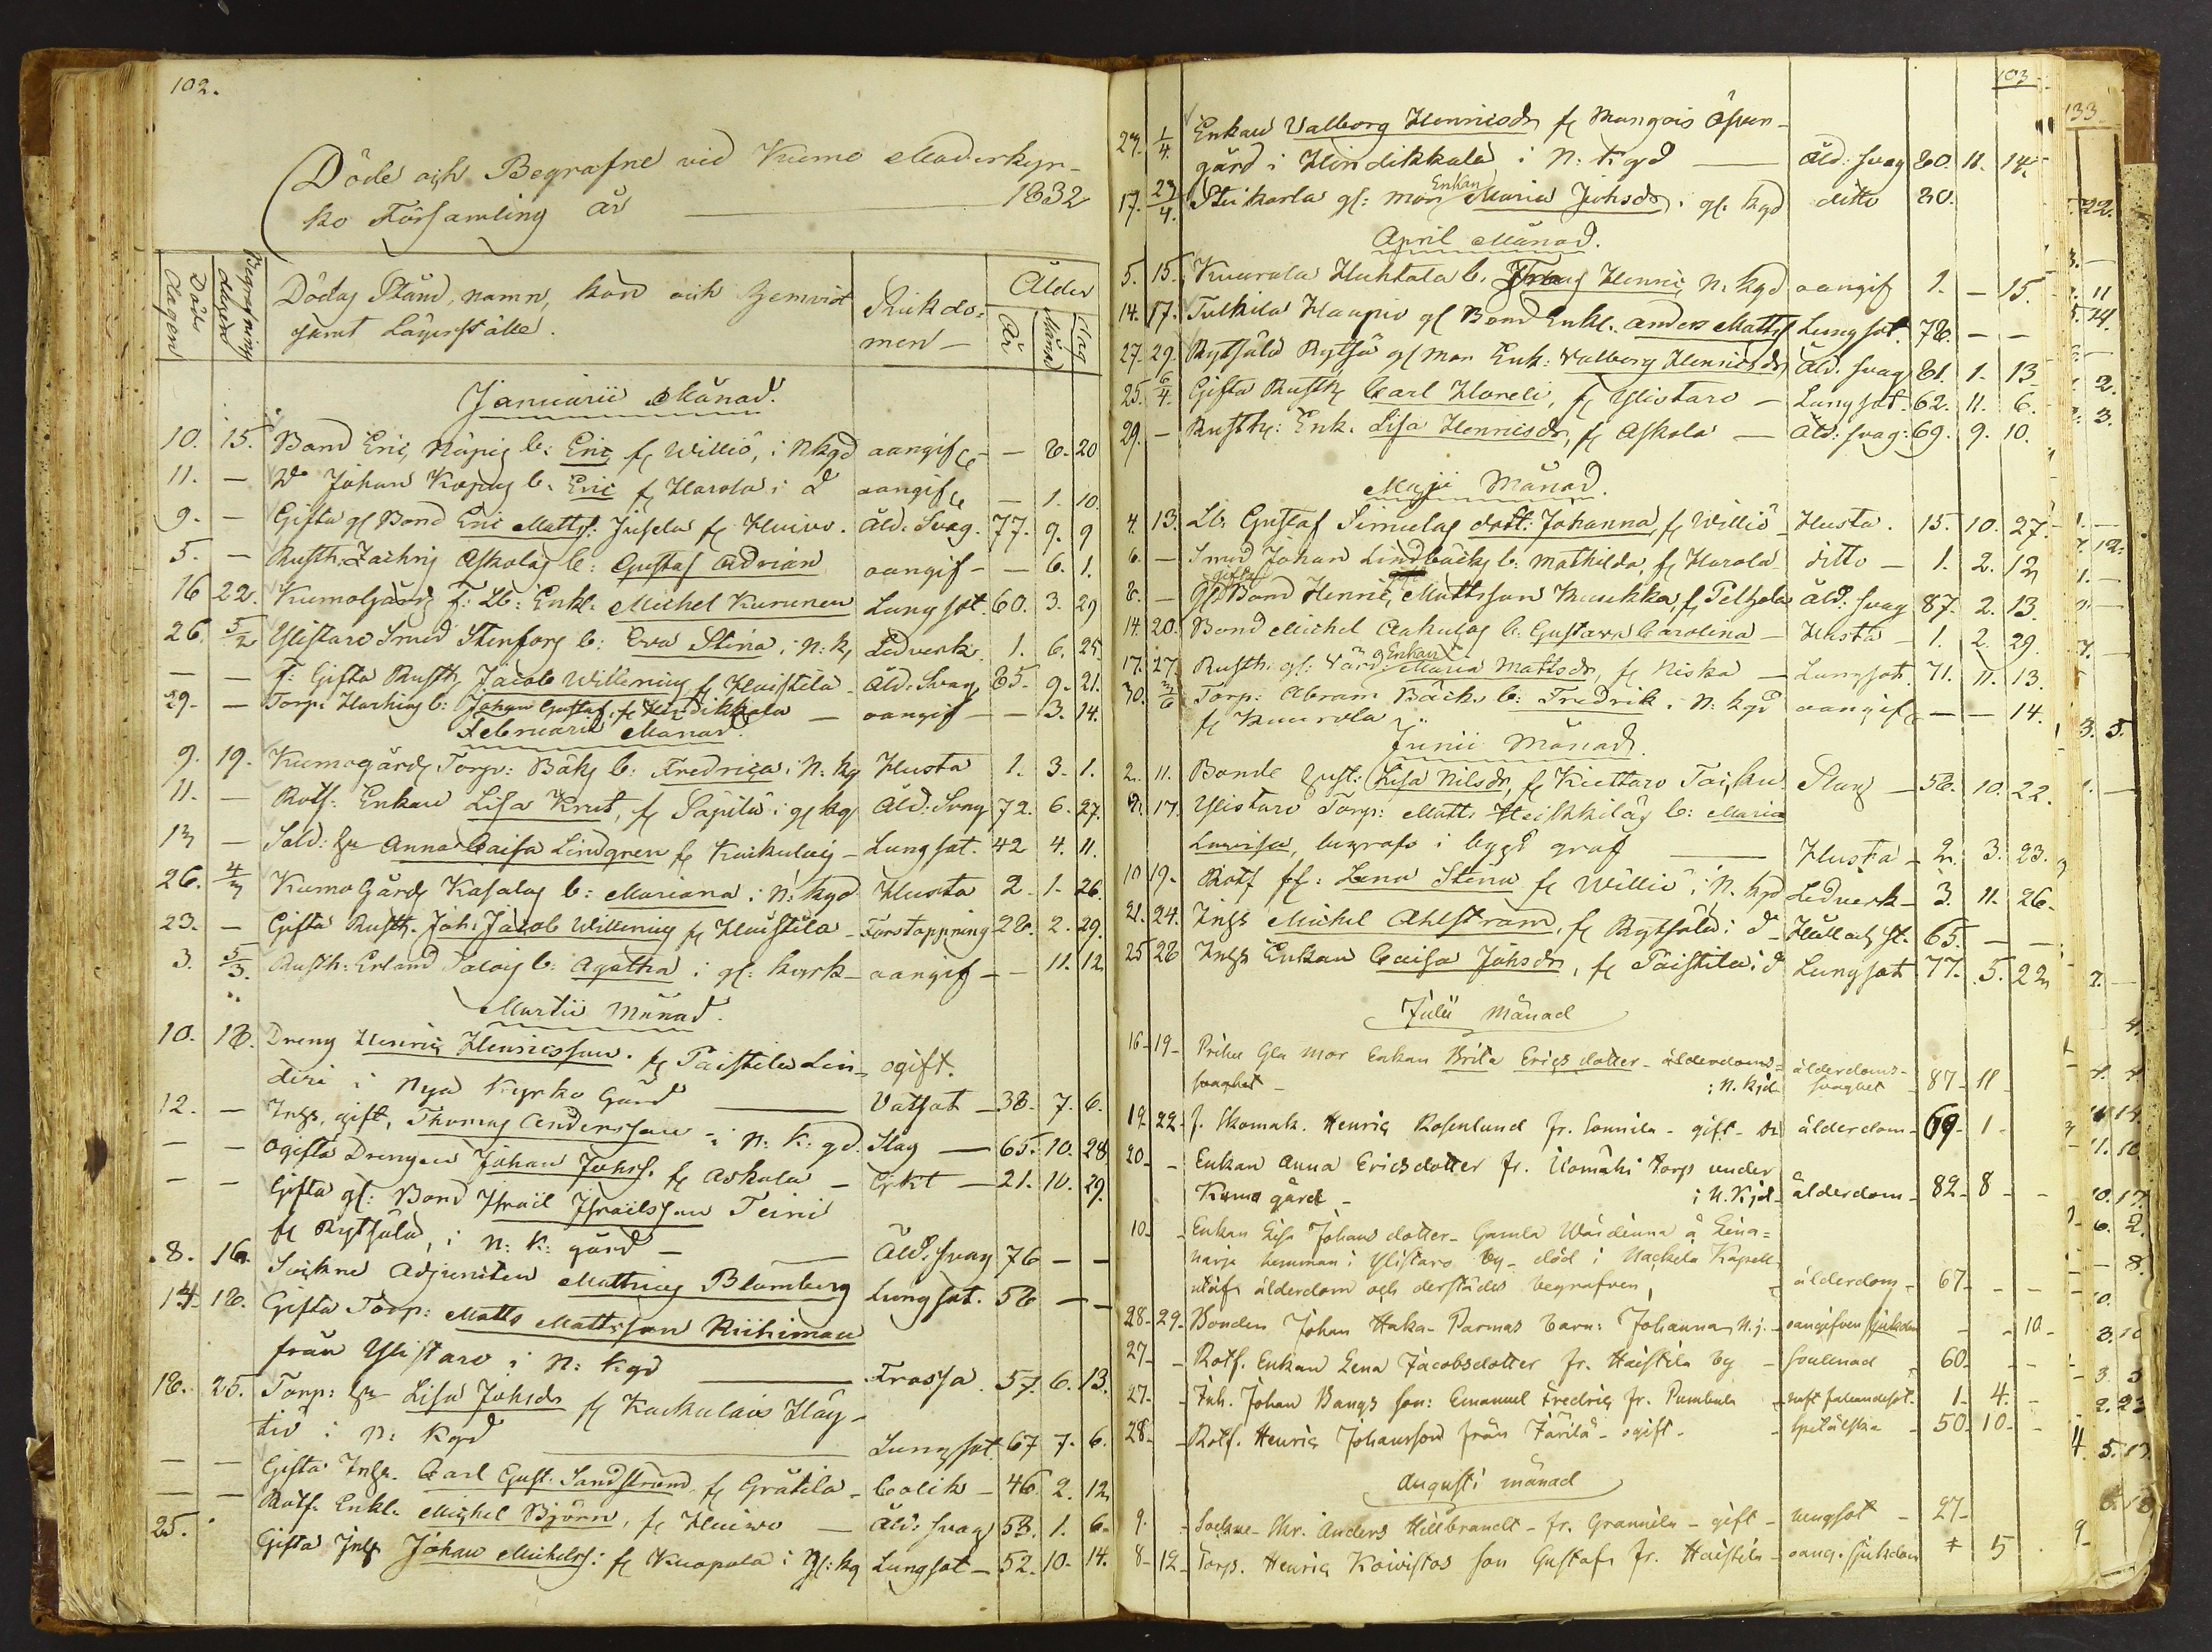 102.
Döde och Begrafne vid Kumo Moderkyr-
ko Församling År 1832
Döds Dagen
Begrafnings dagen
Dödas Stånd, namn, kön och hemvist
samt Lägerställe.
Sjukdo-
men
Ålder
År
Månad
Dag
Januarii Månad.
10. 15. Bond Eric Näpis b: Eric fr Williö, i Nkgd oangif - 8. 20
11. - Do Johan Kopins b. Eric fr Harola i d oangif - 1. 10.
9. - Gifta gl Bond Eric Matts: Jusela fr Huivo. Åld. Svag. 77. 9. 9
5. - Rusth. Zachris Askolas b: Gustaf Adrian oangif - - 6. 1.
16 22. Kumogård f: Lb: Enkl. Michel Kurunen Lungsot 60. 3. 29
26. 5/2 Ylistaro Smed Stenfors b: Eva Stina i n: k Ledverk. 1. 6. 25.
- - F: Gifta Rusth Jacob Willenius fr Haistila Åld. Svag 85. 9. 21.
29. - Torp: Harhins b: Johan Gustaf, fr Hindikkala - oangif - - 3. 14.
Februarii Månad.
9. 19. Kumogårds Torp: Bäks b: Fredrica i N: kg Husta 1. 3. 1.
11. - Rotf: Enkan Lisa Krut, fr Säpilä i gl kg Åld: Svag 72. 6. 27.
13 - Sold: hu Anna Caisa Lindgren fr Kaukulais - Lungsot. 42 4. 11.
26. 4/3 Kumo Gårds Kasalas b: Mariana i N: kgd Husta 2. 1. 26.
23. - Gifta Rusth. Joh: Jacob Willenius fr Haistila - Förstoppning 28. 2. 29.
3. 5/3. Rusth: Erland Salois b: Agatha i gl: kyrk - oangif - - 11. 12
Martii Månad.
10. 18. Dreng Henric Henricsson. fr Paistila Lin- ogift.
deri i Nya Kyrko Gård Vatsot - 38. 7. 6.
12. - Inhs. gift, Thomas Andersson i N: K: gd. Slag - 65. 10. 28
- - ogifta Drengen Johan Johs: fr Askola - Gikt - 21. 10. 29.
- - Gifta gl: Bond Israil Israilsson Teini
fr Ryttsälä, i N: K: gård - Åld. svag 76 - -
8. 16. Sockne Adjuncten Mathias Blomberg Lungsot. 58 - -
14. 18. Gifta Torp: Matts Mattsson Riihimau
från Ylistaro i N: kgd Frossa. 57. 6. 13.
18. 25. Torp: hu Lisa Johsdr fr Kaukulais Häy-
tiö i N: kgd Lungsot. 67 7. 6.
- - Gifta Inhs. Carl Gust. Sandström fr Gråtila - Colik - 46. 2. 12,
- - Rotf. Enkl. Michel Björn, fr Huivo - Åld: svag 53. 1. 6.
25. Gifta Inhs Johan Michels: fr Knapola i Gl: kg Lungsot - 52. 10. 14.
103
23. 1/4. Enkan Valborg Henricsdr fr Mangois Äpen-
gärd i Hindikkala i N: kgd Åld: svag 80. 11. 14.
17. 23/4. Steikarla gl: mor Enkan Maria Johsdr i gl. kgd ditto 80.
April Månad.
5. 15. Kuurola Huhtala b. Henric n. kgd oangif 1. - 15.
14. 17. Tulkila Haupio gl Bond Enkl. Anders Matts Lungsot. 78. - -
27. 29. Ryttsälä Ryttsä gl mor Enk: Valborg Henricsdr Åld. svag 81. 1. 13
25. 6/4. Gifta Rusth Carl Horeli, fr Ylistaro - Lungsot. 62. 11. 6.
29. - Rusth: Enk. Lisa Henricsdr, fr Askola - Åld: svag: 69. 9. 10.
Maji Månad.
4. 13. Lb. Gustaf Simulas dott: Johanna fr Williö - Husta. 15. 10. 27.
6. - Smed Johan Lindbäcks b: Mathilda, fr Harola ditto - 1. 2. 12
8. - gifta gl: Bond Henric Mattsson Kuukka, fr Peltola Åld: svag 87. 2. 13.
14. 20. Bond Michel Aakulas b. Gustava Carolina - Husta - 1. 2. 29.
17. 27 Rusth. gl: Värd: Enkan Maria Mattsdr, fr Niska - Lungsot. 71. 11. 13.
30. 3/6 Torp: Abram Bäcks b: Fredrik i N: kgd oangif - - 14.
fr Kuurola
Junii Månad.
2. 11. Bonde hust: Lisa Nilsdr, fr Kiettaro Slag - 58. 10. 22.
9. 17. Ylistaro Torp: Matts Heikkiläs b: Maria
Lovisa, begrafs i bygd graf Husta - 2. 3. 23.
10 19. Rotf ff: Lena Stina fr Williö i N. kgd Ledverk - 3. 11. 26.
21. 24. Inhs Michel Ahlstram, fr Ryttsälä i d - Håll och st. 65. - -
25 28 Inhs Enkan Caisa Johsdr, fr Päistilä i d Lungsot 77. 5. 22
Julii Månad
16 - 19 - Prihu Gla mor Enkan Brita Erics dotter - ålderdoms- ålderdoms-
svaghet - i N. Kjd svaghet - 87 - 11
19. 22. f. Skomak. Henric Rosenlund fr. Sonnila - gift - ålderdom - 69 - 1 -
20 - - Enkan Anna Ericsdotter fr. Ilomäki torp under
Kumo gård - i N. Kjd - ålderdom - 82 - 8 - -
10 - - Enkan Lisa Johans dotter - Gamla Wärdinna å Leina-
harja hemman i Ylistaro by - död i Nackila Kapell
utaf ålderdom och derstädes begrafven, - ålderdom - 67 - - -
28 - 29 - Bonden Johan Haka-Parmas barn: Johanna, N. j. - oangifven sjukdom - - 10 -
27 - - Rotf. Enkan Lena Jacobsdotter fr. Haistila by - svullnad - 60 - - -
27 - - Inh. Johan Bangs son: Emanuel Fredric fr. Pumbula - - 1 - 4 -
28 - - Rotf. Henric Johansson från Järilä - ogift - - spitälska - 50 - 10 -
Augusti månad
9. - Sockne-Skr. Anders Hillbrandt - fr. Grannila - gift - lungsot - 27 -
8 - 12 - Torp. Henric Koivistos son Gustaf, fr. Haistila - oang. sjukdom 5
133